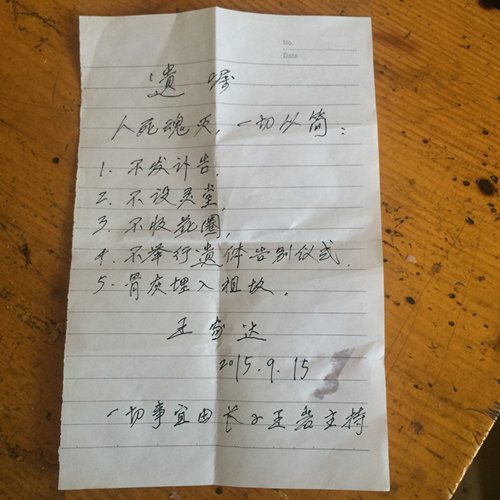 No.
Date
遗嘱
人死魂灭,一切从简:
1. 不发讣告,
2. 不设灵堂,
3. 不收花圈,
4. 不举行遗体告别仪式.
5. 骨灰埋入祖坟.
王家达
2015.9.15
一切事宜由长子王岩主持